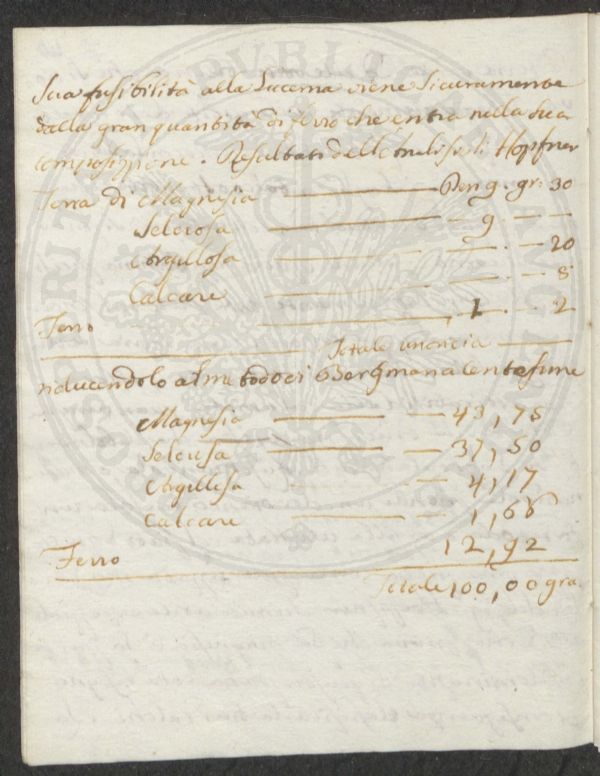 sua fusibilità alla Lucerna viene sicuramente
dalla gran quantità di ferro che entra nella sua
composizzione. Resultati dell'Analisi di Hopfner
Terra di Magnesia — gr: 30
Selciosa — 9 — —
Argillosa — — 20
Calcare — — 8
Ferro — 1 — 2
Totale un'oncia —
riducendolo al metodo di Bergman a Centesime
Magnesia — — 43,75
Selciosa — — 37,50
Argillosa — — 4,17
Calcare — — 1,66
Ferro 12,92
Totale 100,00 gra.